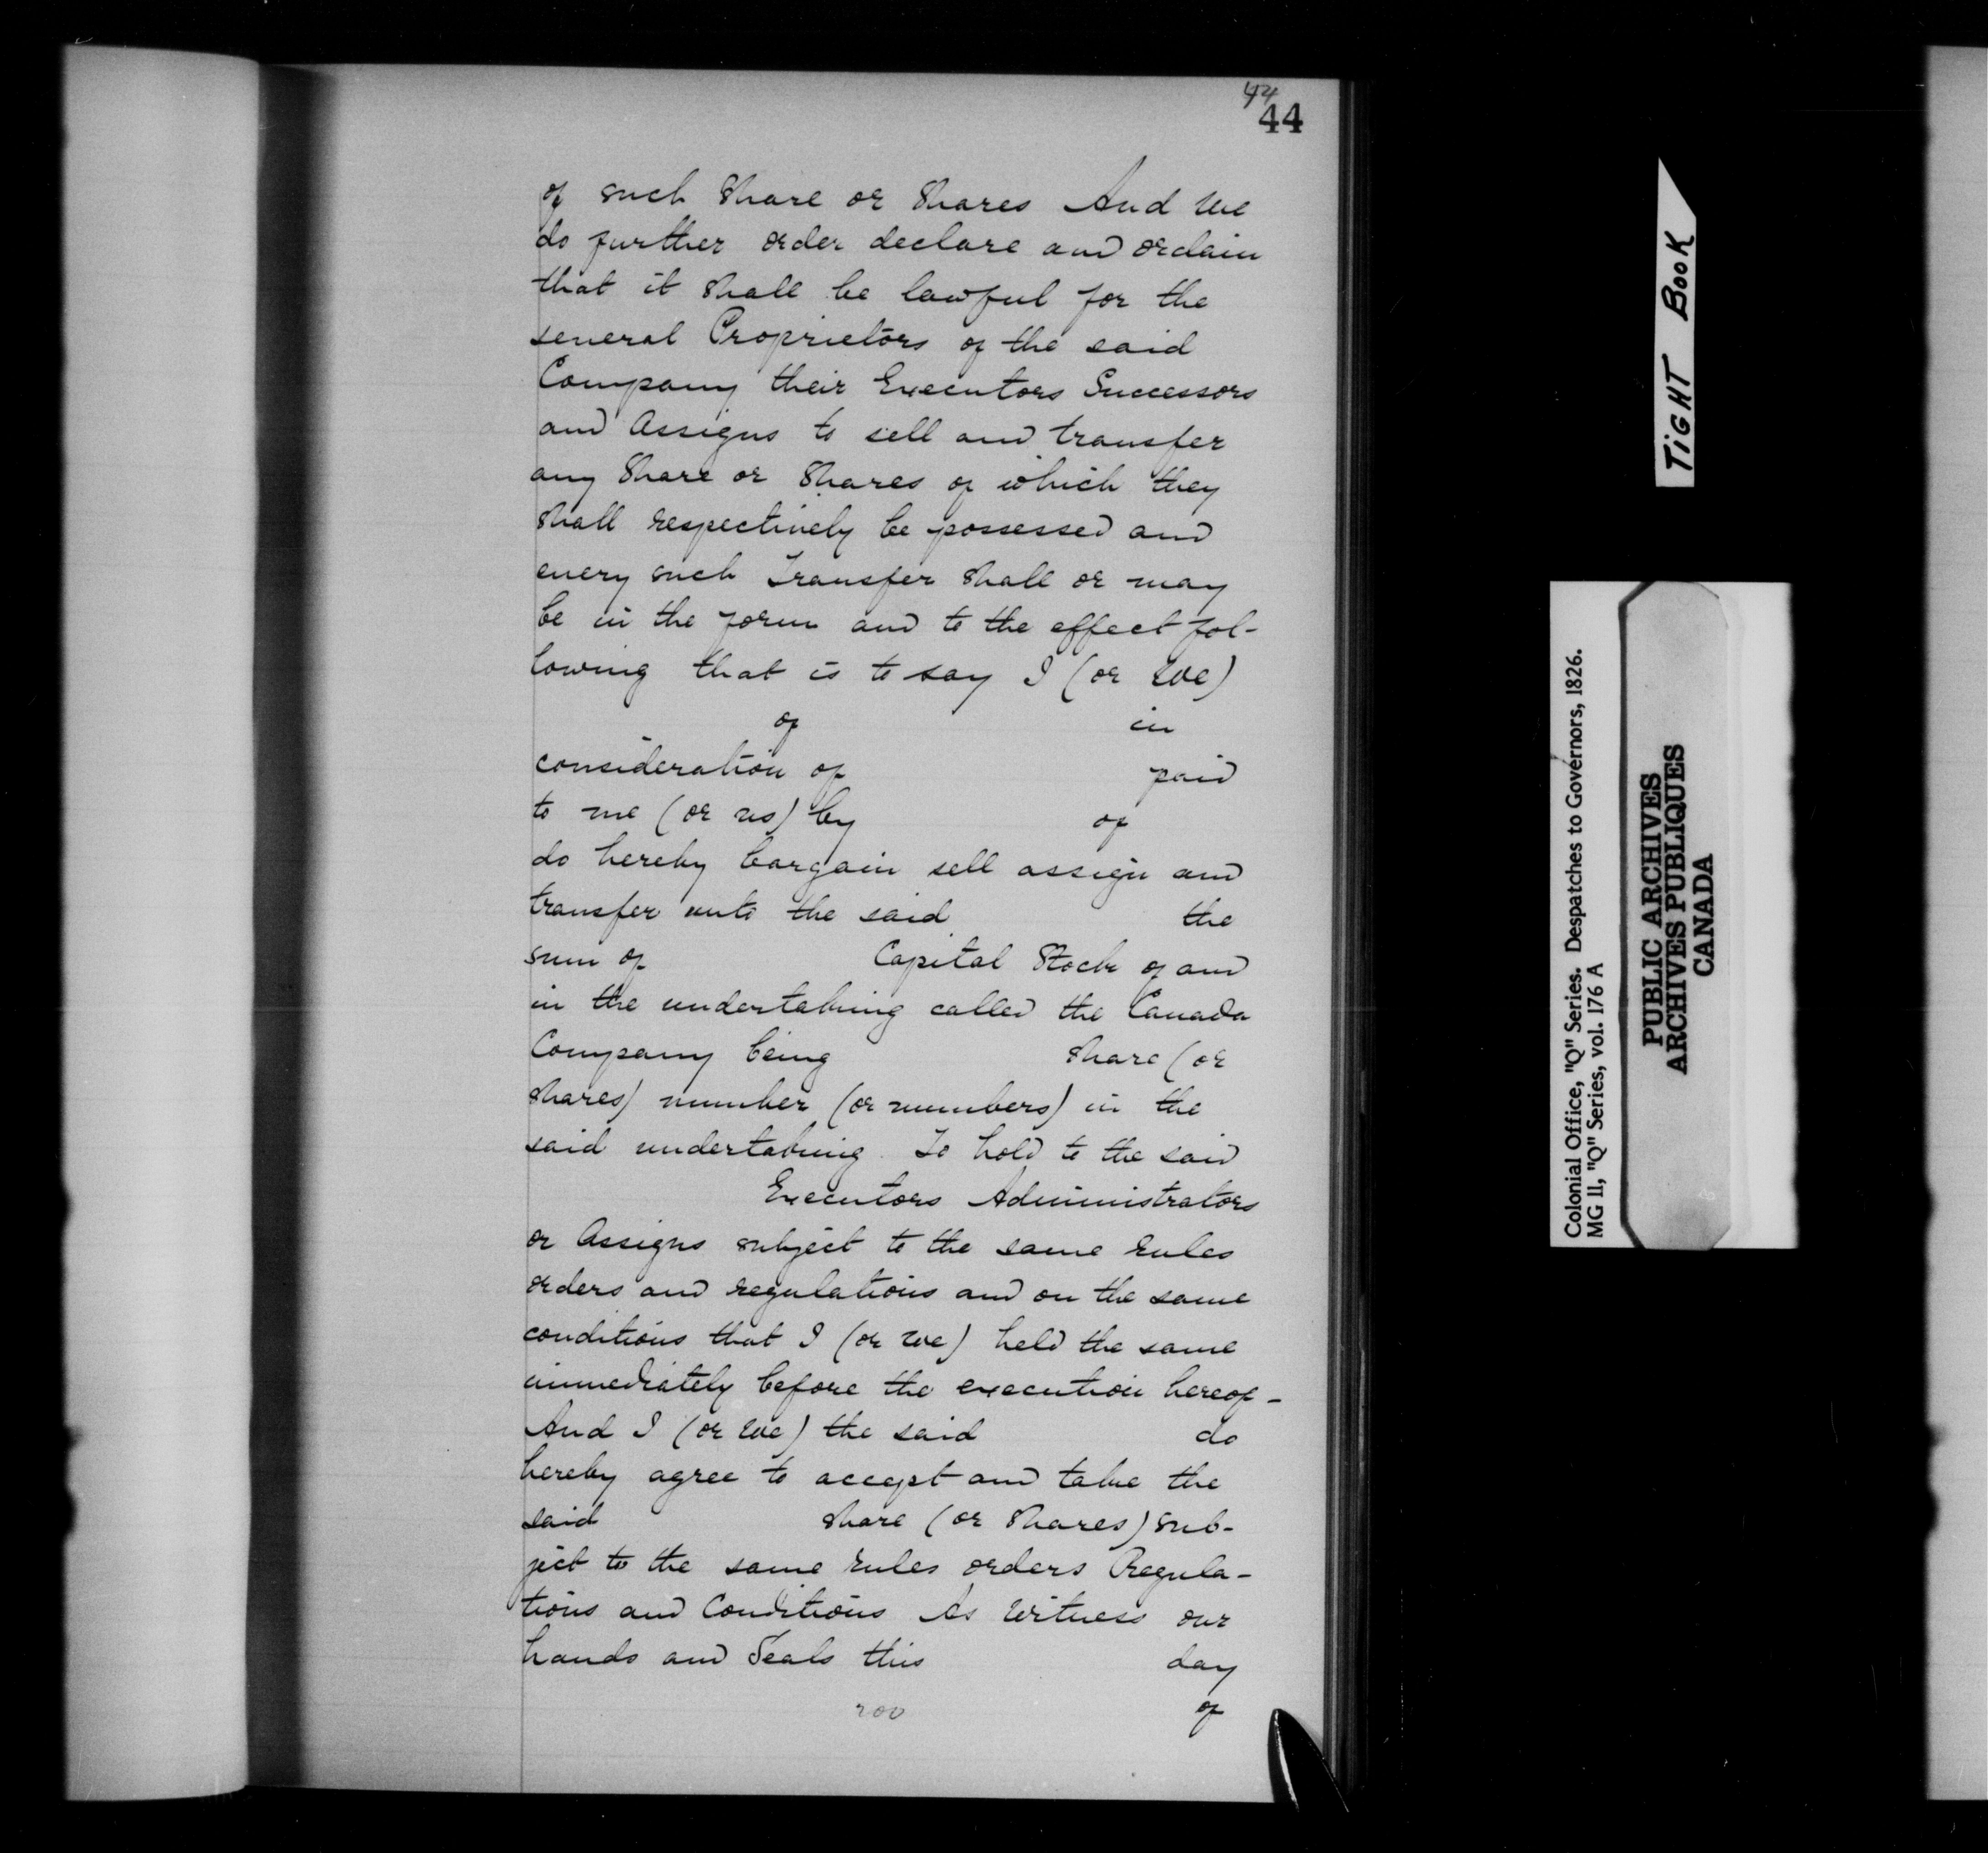 44
44
of such Share or Shares And We
do further order declare and ordain
that it shall be lawful for the
several Proprietors of the said
Company their Executors Successors
and Assigns to sell and transfer
any Share or Shares of which they
shall respectively be possessed and
every such Transfer shall or may
be in the form and to the effect fol-
lowing that is to say I (or We)
of in
consideration of paid
to me (or us) by of
do hereby bargain sell assign and
transfer unto the said the
sum of Capital Stock of and
in the undertaking called the Canada
Company being share (or
shares) number (or numbers) in the
said undertaking. To hold to the said
Executors Administrators
or Assigns subject to the same rules
orders and regulations and on the same
conditions that I (or We) held the same
immediately before the execution hereof -
And I (or We) the said do
hereby agree to accept and take the
said share (or Shares) sub-
ject to the same rules orders Regula-
tions and Conditions As Witness our
hands and Seals this day
of
200
TIGHT BOOK
Colonial Office, "Q" Series. Despatches to Governors, 1826.
MG 11, "Q" Series, vol. 176 A
PUBLIC ARCHIVES
ARCHIVES PUBLIQUES
CANADA